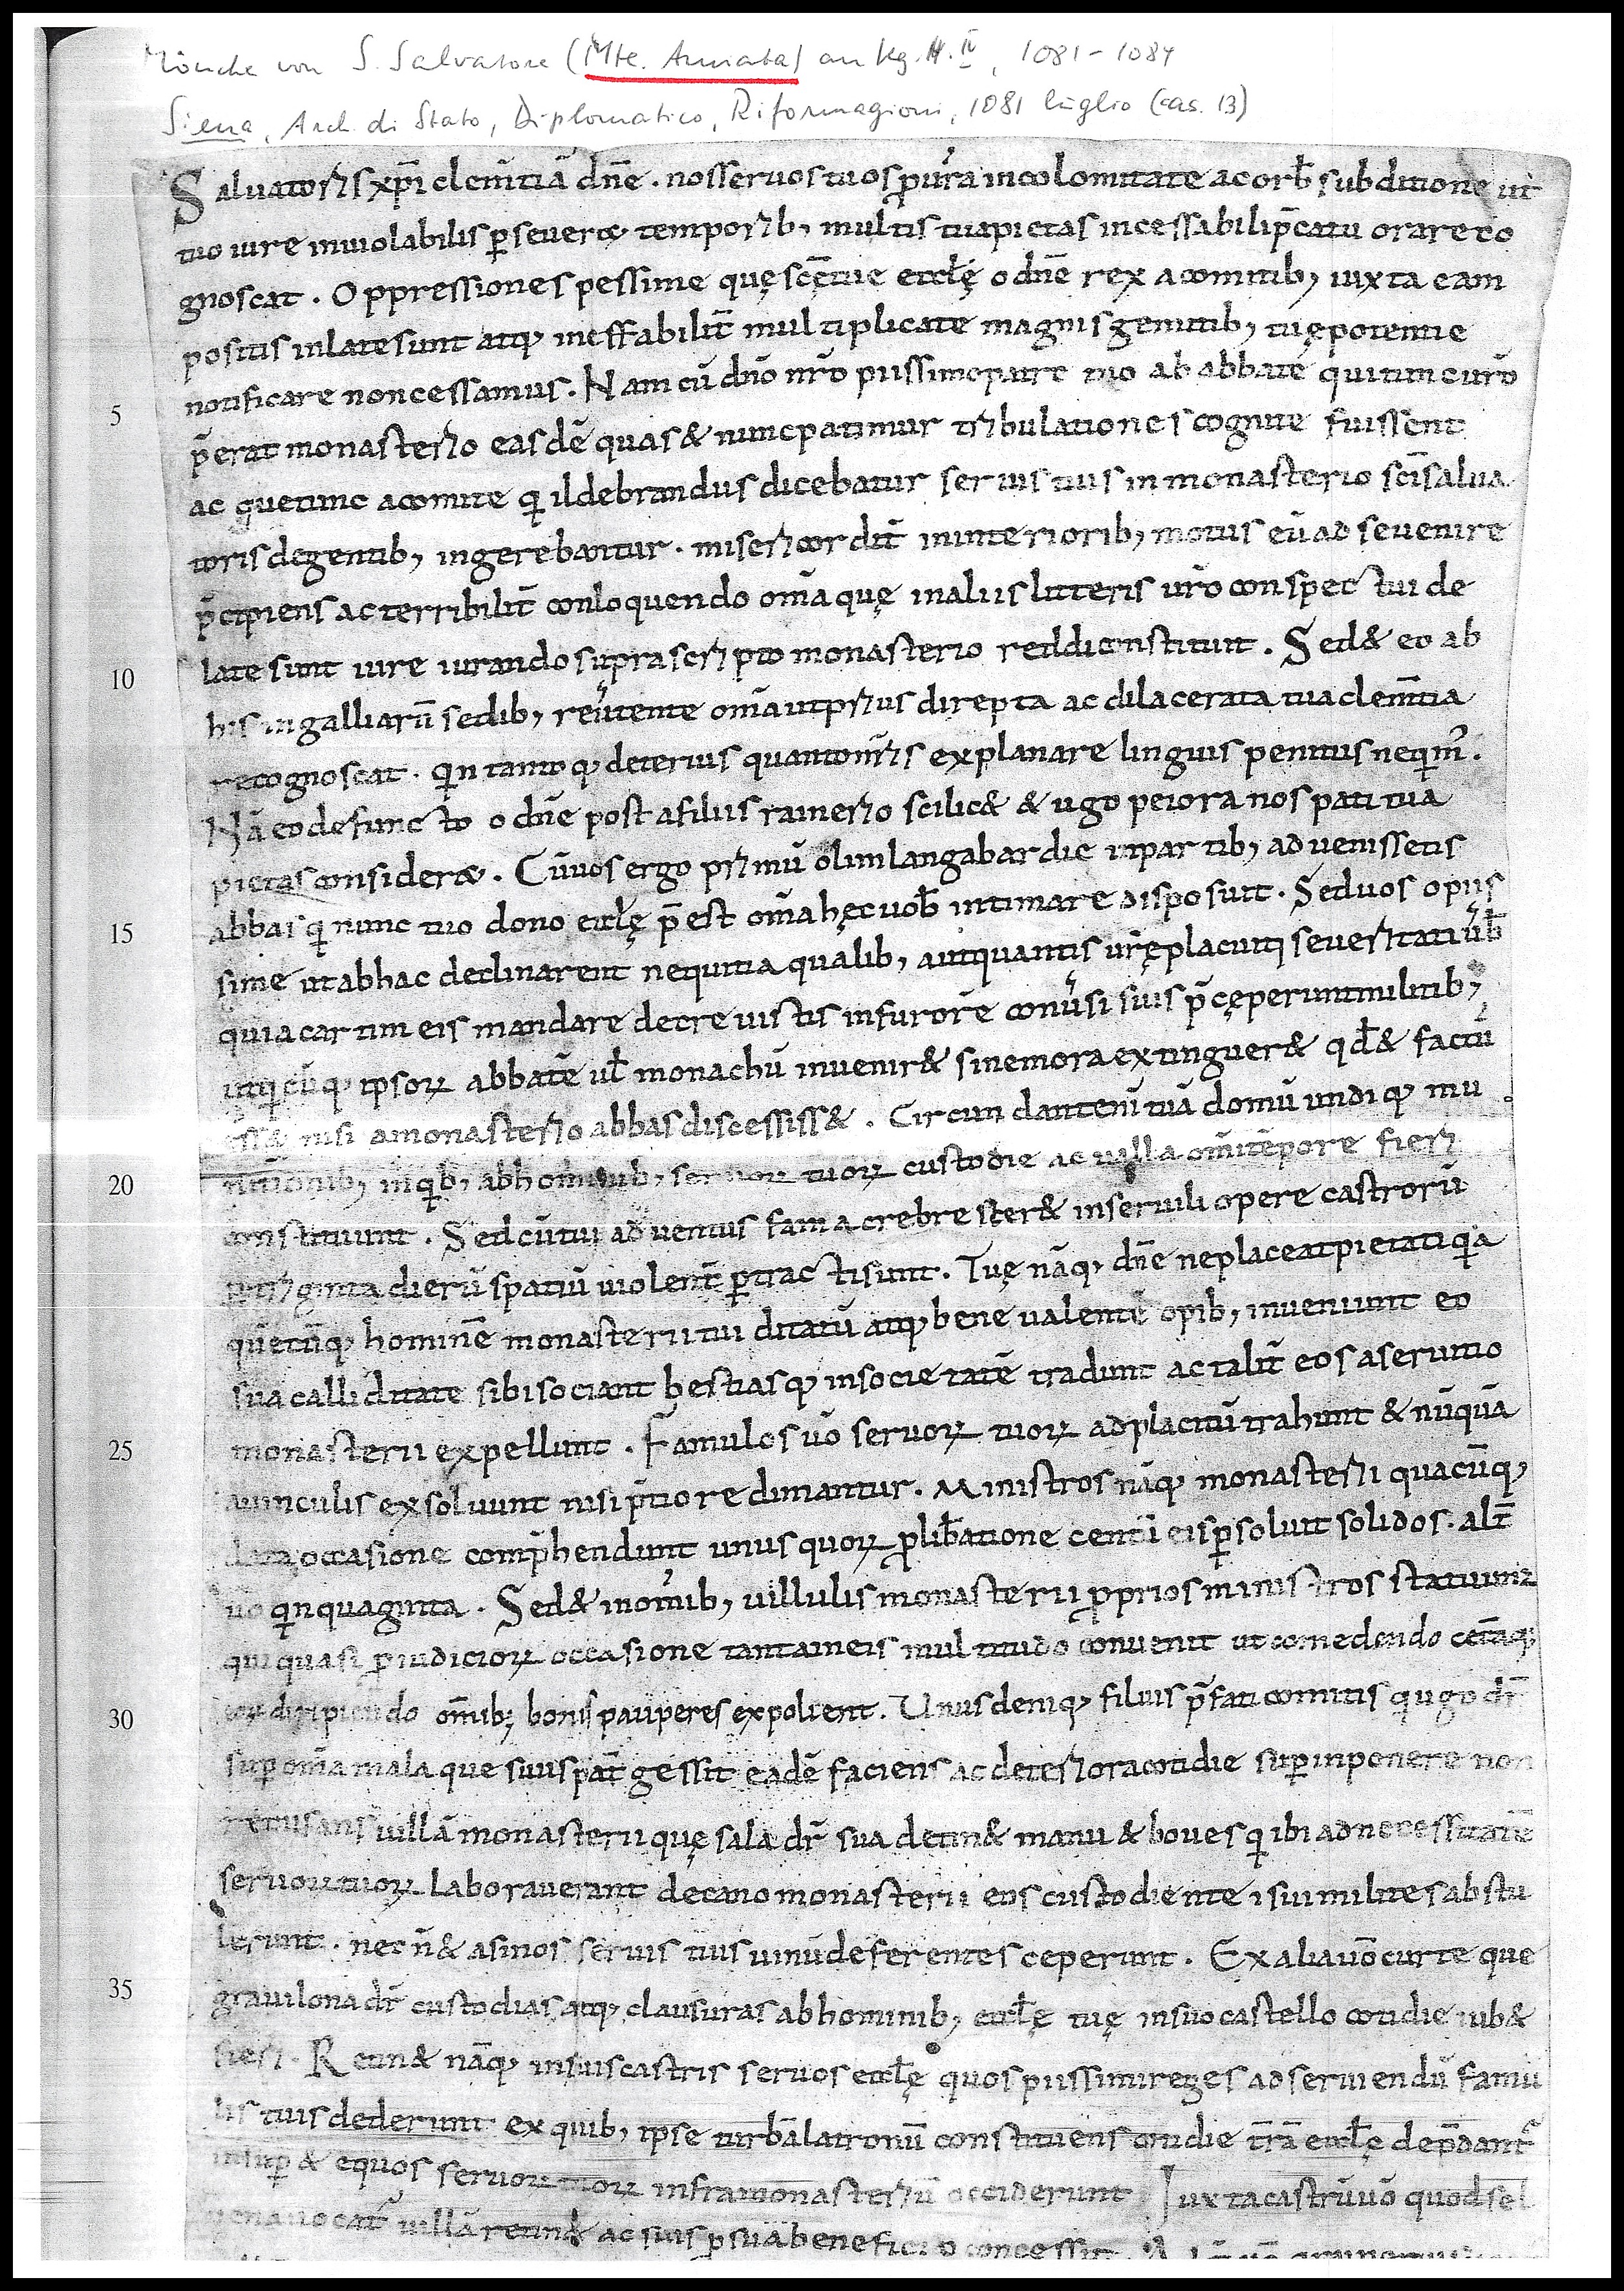 Mönche von S. Salvatore (Mte. Amiata) an Kg. H. IV, 1081-1084
Siena, Arch. di Stato, Diplomatico, Riformagioni, 1081 luglio (cas. 13)
Saluatoris xp̄i clem̄tiā dn̄e . nos seruos tuos p ur̄a incolomitate ac orb̄ subditione ut
tuo iure inuiolabilis p̱seueret temporib; multis tua pietas incessabili p̄catu orare co
gnoscat . Oppressiones pessime quę sc̄ę tue eccl̄ę o dn̄e rex a comitib; iuxta eam
positis inlate sunt atq; ineffabilit̄ multiplicate magnis gemitib; tuę potentie
5 notificare non cessamus . Nam cū dn̄o nr̄o piissimo patre tuo ab abbate qui tunc ur̄o
p̄erat monasterio easdē quas & nunc patimur tribulationes cognite fuissent
ac que tunc a comite qi ildebrandus dicebatur seruis tuis in monasterio sc̄i salua
toris degentib; ingerebantur . misericordit̄ in interiorib; motus eū ad se uenire
p̄cipiens ac terribilit̄ conloquendo om̄a quę in aliis litteris ur̄o conspectui de
10 late sunt iure iurando suprascripto monasterio reddi constituit . Sed & eo ab
his in galliarū sedib; reūtente om̄a ut prius direpta ac dilacerata tua clem̄tia
recognoscat . qin tantoq; deterius quanto nr̄is explanare linguis penitus neqim̄ .
Nā eo defuncto o dn̄e post a filiis rainerio scilic& & ugo peiora nos pati tua
pietas consideret . Cū uos ergo primū olim langabardie in partib; aduenissetis
15 abbas qi nunc tuo dono eccl̄ę p̄est om̄a hęc uob̄ intimare disposuit . Sed uos o piis
sime ut ab hac declinarent nequitia qualib; aut quantis ur̄ę placuit seueritati ūb̄
quia cartim eis mandare decreuistis in furore conūsi suis p̄cęperunt militib;
ut qicūq; ipsoꝝ abbatē ul̄ monachū inuenir& sine mora extinguer& qd̄ & factū
ess& nisi a monasterio abbas discessiss& . Circundant enī tuā domū undiq; mu
20 nitionib; in qib; ab hominib; seruoꝝ tuoꝝ custodie ac uigilia om̄i tēpore fieri
constituunt . Sed cū tui aduentus fama crebrescer& in seruili opere castrorū
triginta dierū spatiū uiolent̄ p̱tracti sunt . Tuę nāq; dn̄e ne placeat pietati qia
quēcūq; hominē monasterii tui ditatū atq; bene ualentē opib; inueniunt eo
sua calliditate sibi sociant bestiasq; in societatē tradunt ac talit̄ eos a seruitio
25 monasterii expellunt . Famulos ūo seruoꝝ tuoꝝ ad placitū trahunt & nūquā
a uinculis exsoluunt nisi p̄tio redimantur . Ministros nāq; monasterii quacūq;
data occasione comp̄hendunt unus quoꝝ p lib̄atione centū eis p̱soluit solidos . alt̄
ūo qinquaginta . Sed & in om̄ib; uillulis monasterii pprios ministros statuunt
qui quasi p̱ iudicioꝝ occasione tantam eis multitudo conuenit ut comedendo cet̄aq;
30 diripiendo om̄ib; bonis pauperes expolient . Unus deniq; filius p̄fati comitis qi ugo dr̄
sup̱ om̄a mala que suus pat̄ gessit eadē faciens ac deteriora cotidie sup̱inponere non
recusans uillā monasterii quę sala dr̄ sua detin& manu & boues qi ibi ad necessitatē
seruoꝝ tuoꝝ laborauerant decano monasterii eos custodiente isui milites abstu
lerunt . nec n̄ & asinos seruis tuis uinū deferentes ceperunt . Ex alia uō curte que
35 grauilona dr̄ custodias atq; clausuras ab hominib; eccl̄ę tuę in suo castello cotidie iub&
fieri . Retin& nāq; in suis castris seruos eccl̄ę quos piissimi reges ad seruiendū famu
lis tuis dederunt ex quib; ipse turbā latronū constituens cotidie t̄rā eccl̄ę dep̄dant̄
insup̱ & equos seruoꝝ tuoꝝ infra monasteriū occiderunt Iuxta castrū uō quod sel
uena uocat̄ uillā retin& ac suis p̱ sua beneficio concessit .